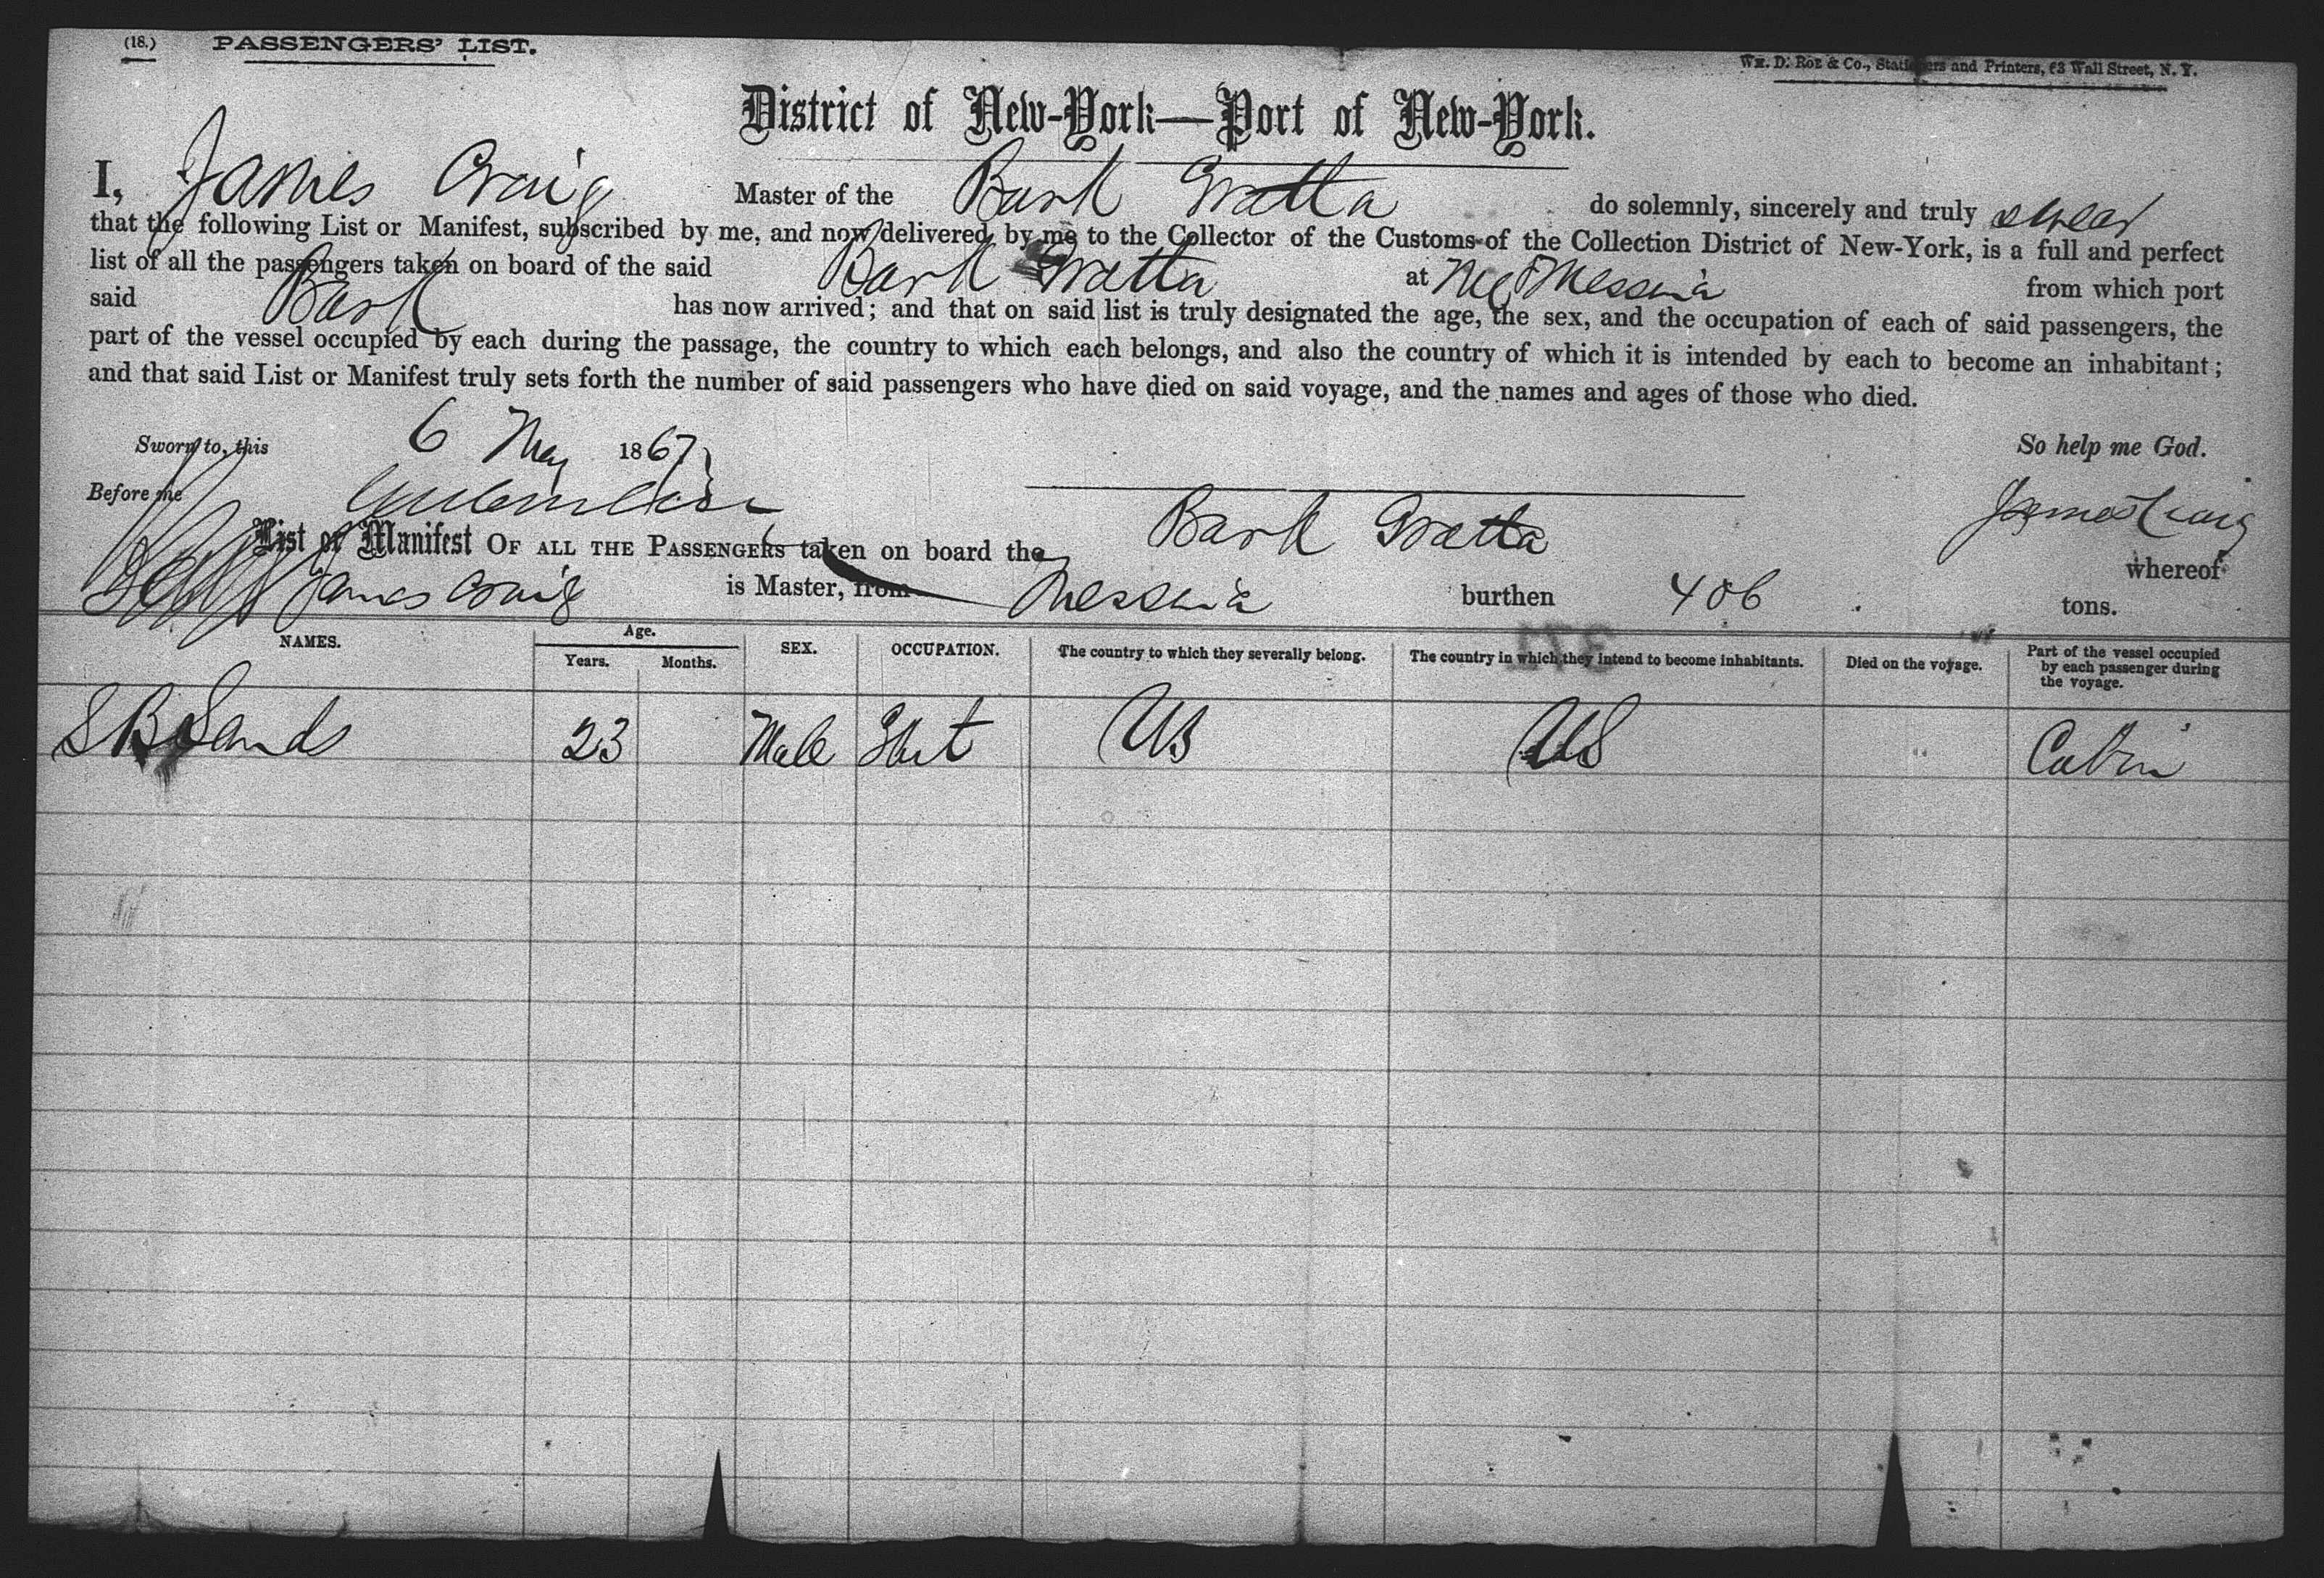 (18.) PASSENGERS' LIST.
Wm. D. Roe & Co., Stationers and Printers, 63 Wall Street, N. Y.
District of New-York—Port of New-York.
I, James Craig Master of the Bark Gratta do solemnly, sincerely and truly swear
that the following List or Manifest, subscribed by me, and now delivered by me to the Collector of the Customs of the Collection District of New-York, is a full and perfect
list of all the passengers taken on board of the said Bark Gratta at Messina from which port
said Bark has now arrived; and that on said list is truly designated the age, the sex, and the occupation of each of said passengers, the
part of the vessel occupied by each during the passage, the country to which each belongs, and also the country of which it is intended by each to become an inhabitant;
and that said List or Manifest truly sets forth the number of said passengers who have died on said voyage, and the names and ages of those who died.
Sworn to, this 6 May 1867 So help me God.
Before me James Craig
List or Manifest OF ALL THE PASSENGERS taken on board the Bark Gratta whereof
James Craig is Master, from Messina burthen 406 tons.
NAMES. Age. Years. Months. SEX. OCCUPATION. The country to which they severally belong. The country in which they intend to become inhabitants. Died on the voyage. Part of the vessel occupied by each passenger during the voyage.
S B Sands 23 Male US US Cabin